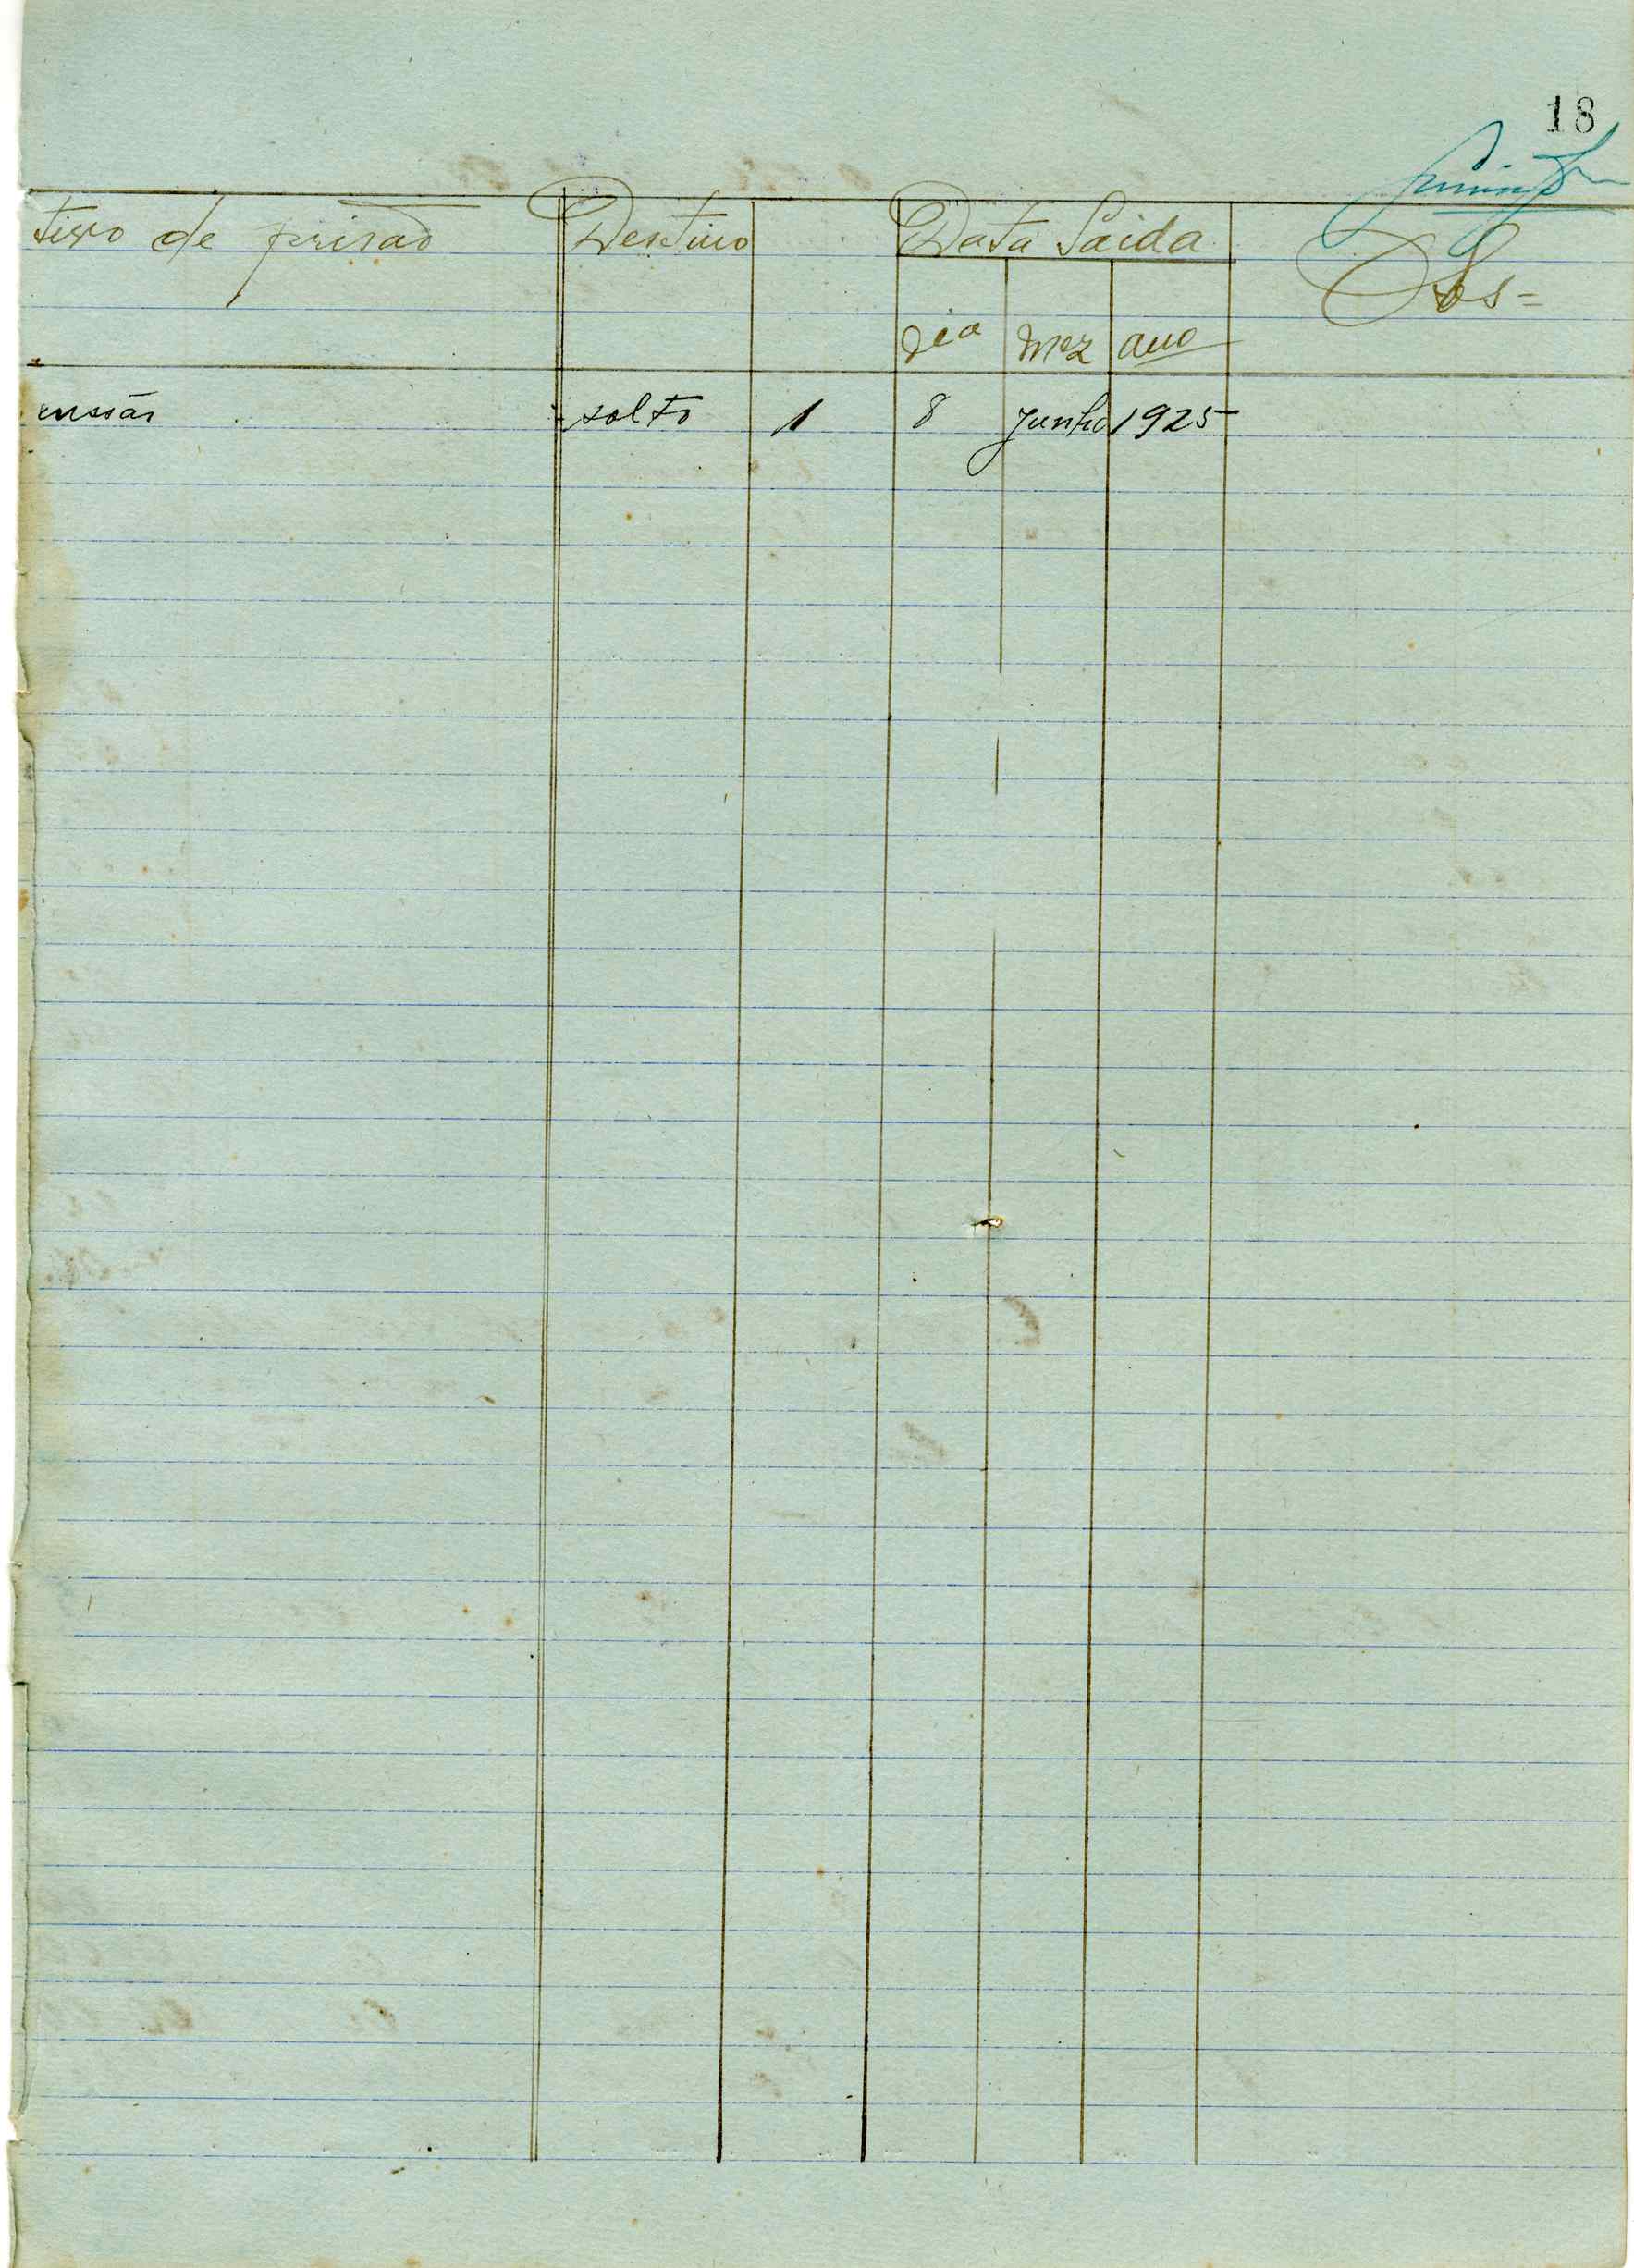 18
tivo de prisão Destino Data Saida Obs=
dia mez ano
solto 1 8 Junho 1925